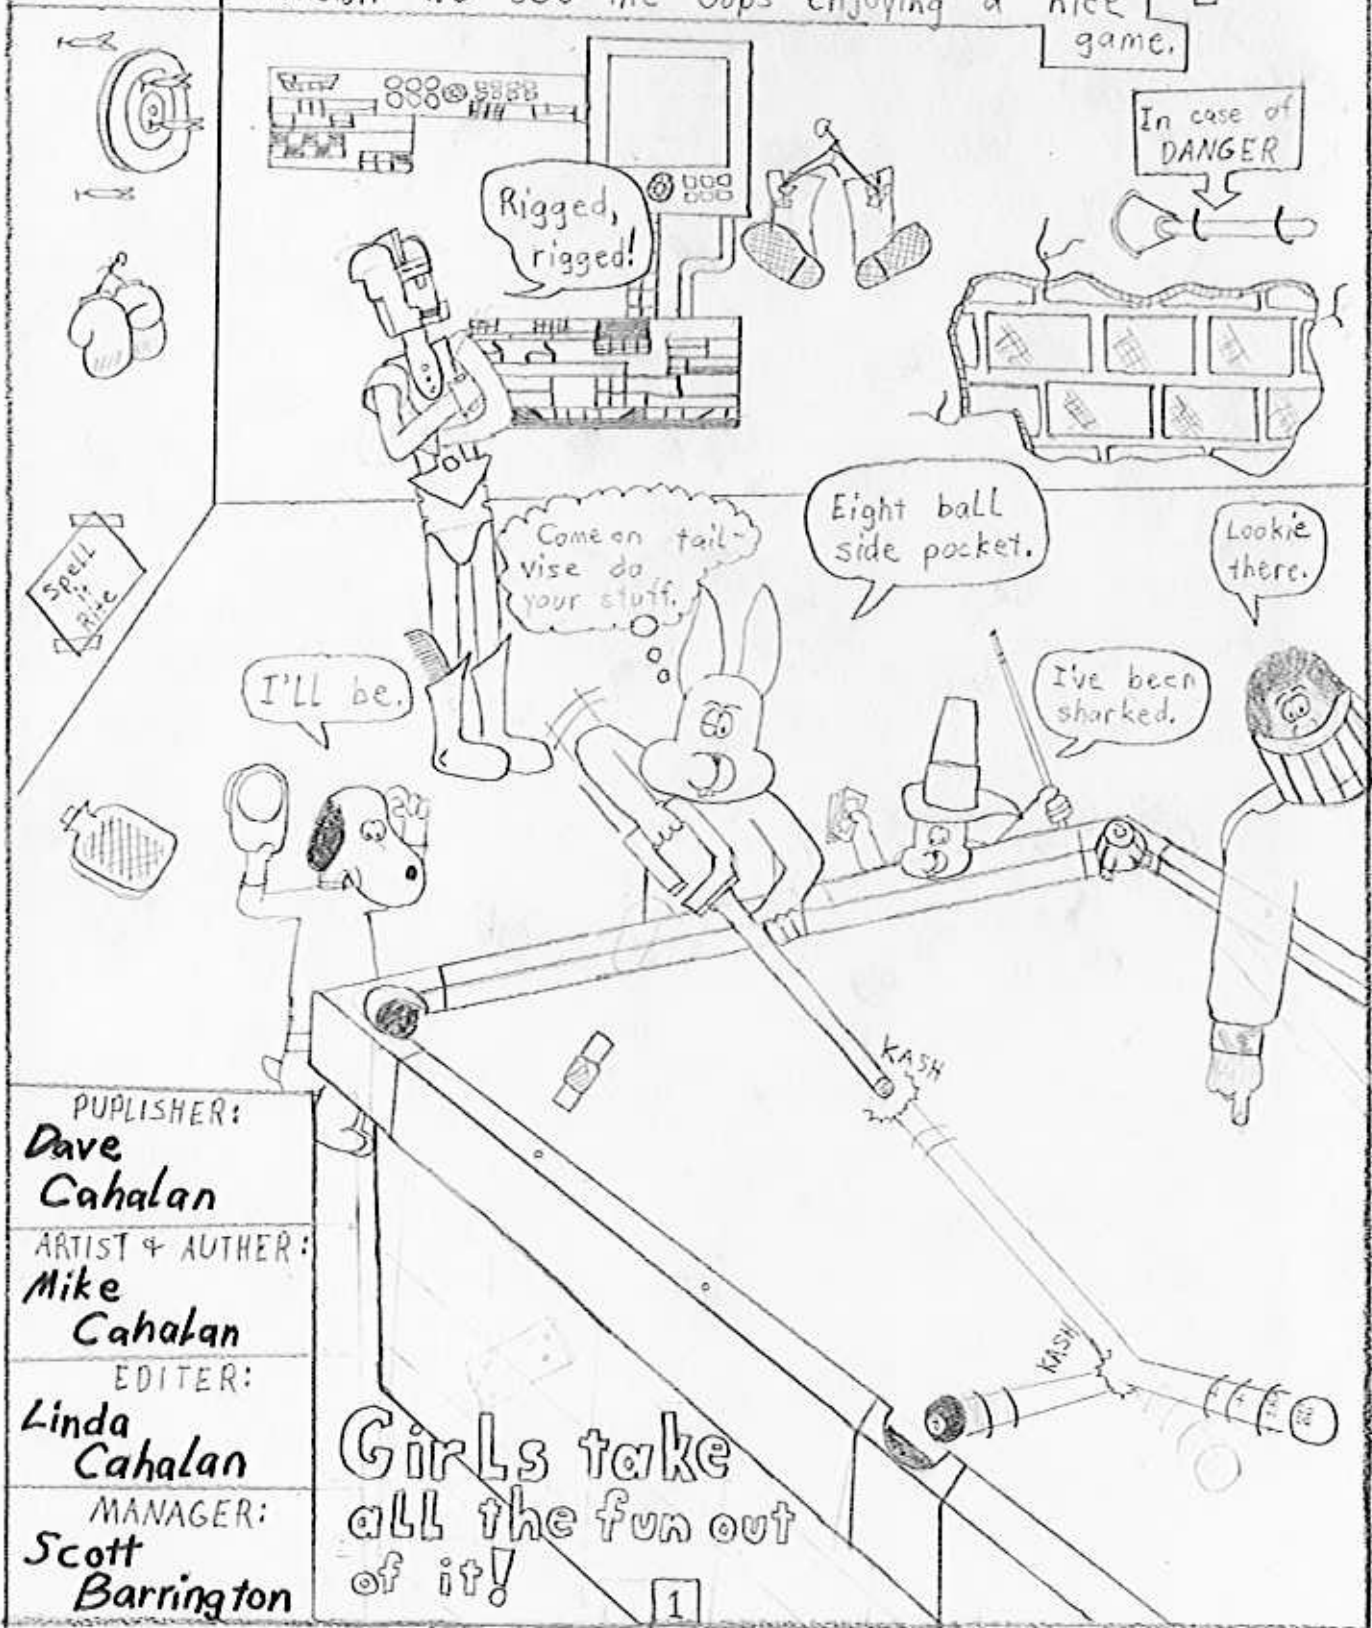 enjoying a nice
game.
In case of
DANGER
Rigged,
rigged!
Come on tail-
vise do
your stuff.
Eight ball
side pocket.
Lookie
there.
Spell
it
Rite
I'll be.
I've been
sharked.
KASH
KASH
PUPLISHER:
Dave
Cahalan
ARTIST & AUTHER:
Mike
Cahalan
EDITER:
Linda
Cahalan
MANAGER:
Scott
Barrington
GirLs take
aLL the fun out
of it!
1